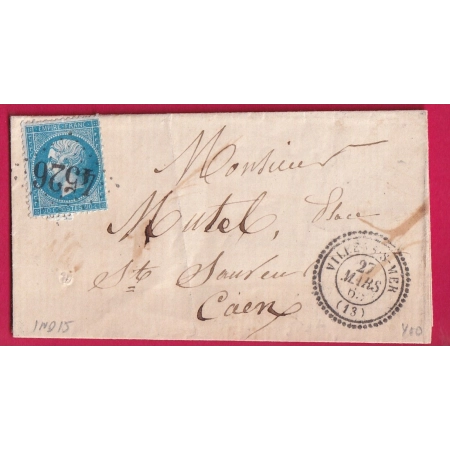 EMPIRE FRANC
4526
Monsieur
Mutel, Place
St Sauveur
Caen
VILLERS-S-MER
27
MARS
(13)
IND 15